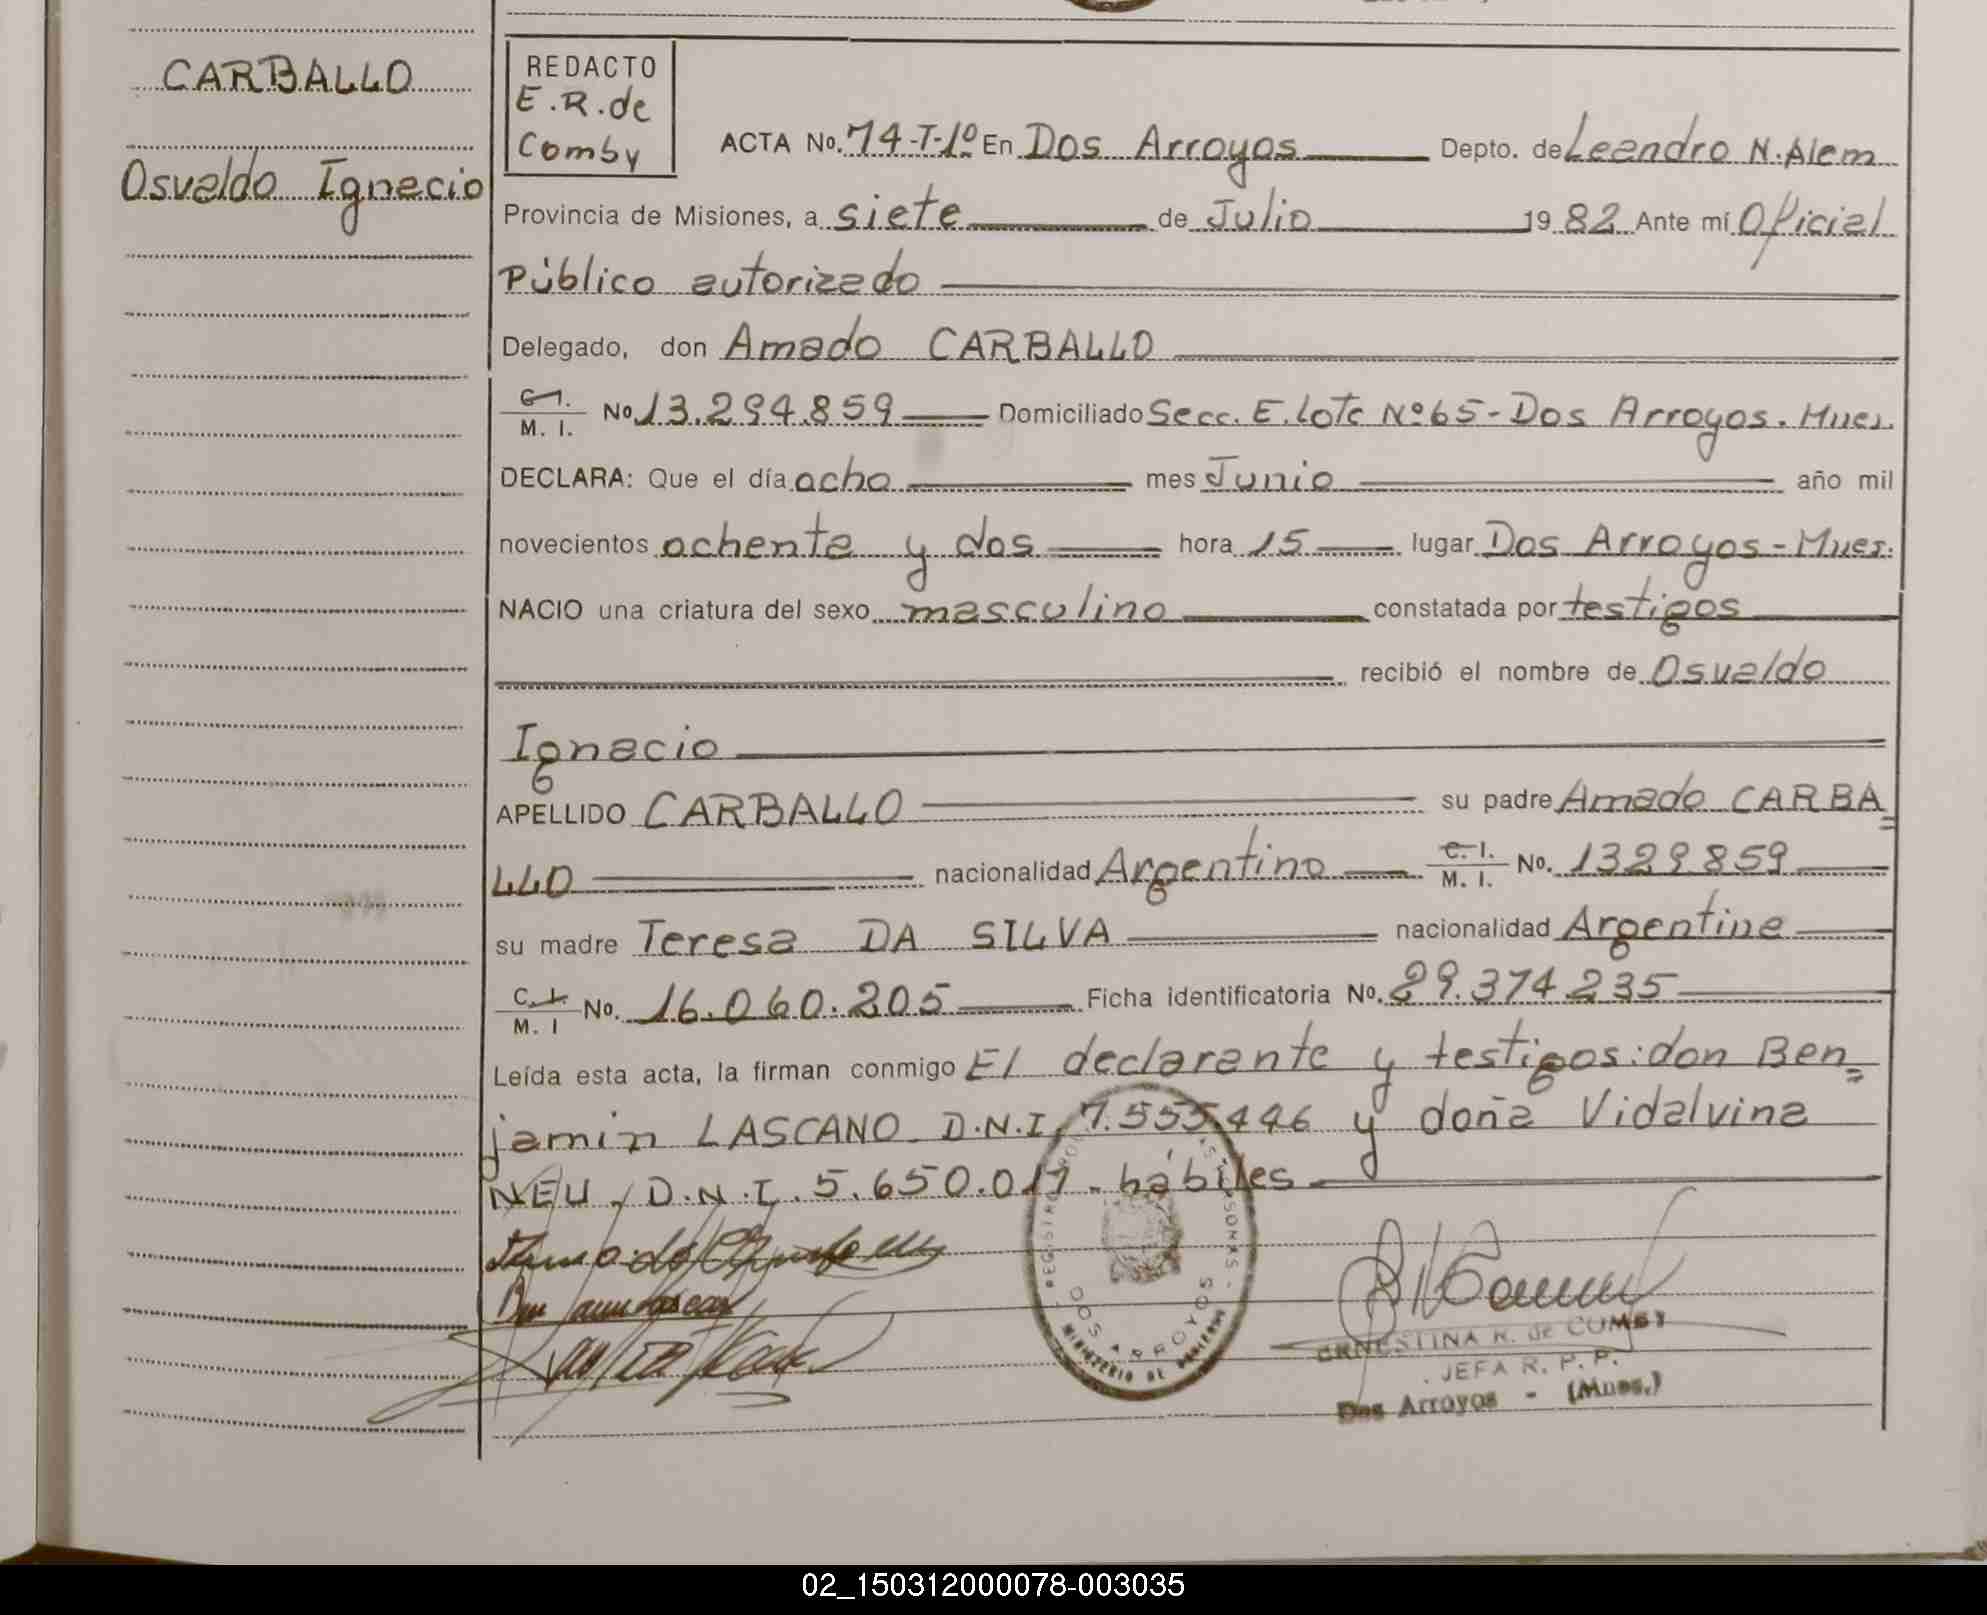 CARBALLO
Osvaldo Ignacio
REDACTO
E.R.de
Comby
ACTA No. 74-T-1º En Dos Arroyos Depto. de Leandro N. Alem
Provincia de Misiones, a siete de Julio 1982 Ante mí Oficial
Público autorizado
Delegado, don Amado CARBALLO
C.I. M. I. No 13.294.859 Domiciliado Secc. E. Lote Nº 65 - Dos Arroyos. Mnes.
DECLARA: Que el día ocho mes Junio año mil
novecientos ochenta y dos hora 15 lugar Dos Arroyos - Mnes.
NACIO una criatura del sexo masculino constatada por testigos
recibió el nombre de Osvaldo
Ignacio
APELLIDO CARBALLO su padre Amado CARBA=
LLO nacionalidad Argentino C. I. M. I. No. 1329859
su madre Teresa DA SILVA nacionalidad Argentina
C. I. M. I No. 16.060.205 Ficha identificatoria No. 29.374.235
Leída esta acta, la firman conmigo El declarante y testigos: don Ben=
jamin LASCANO D.N.I. 7.555.446 y doña Vidalvina
NEU, D.N.I. 5.650.017 - hábiles
REGISTRO PERSONAS
DOS ARROYOS
MINISTERIO DE GOBIERNO
ERNESTINA R. de COMBY
JEFA R. P. P.
Dos Arroyos - (Mnes.)
02_150312000078-003035